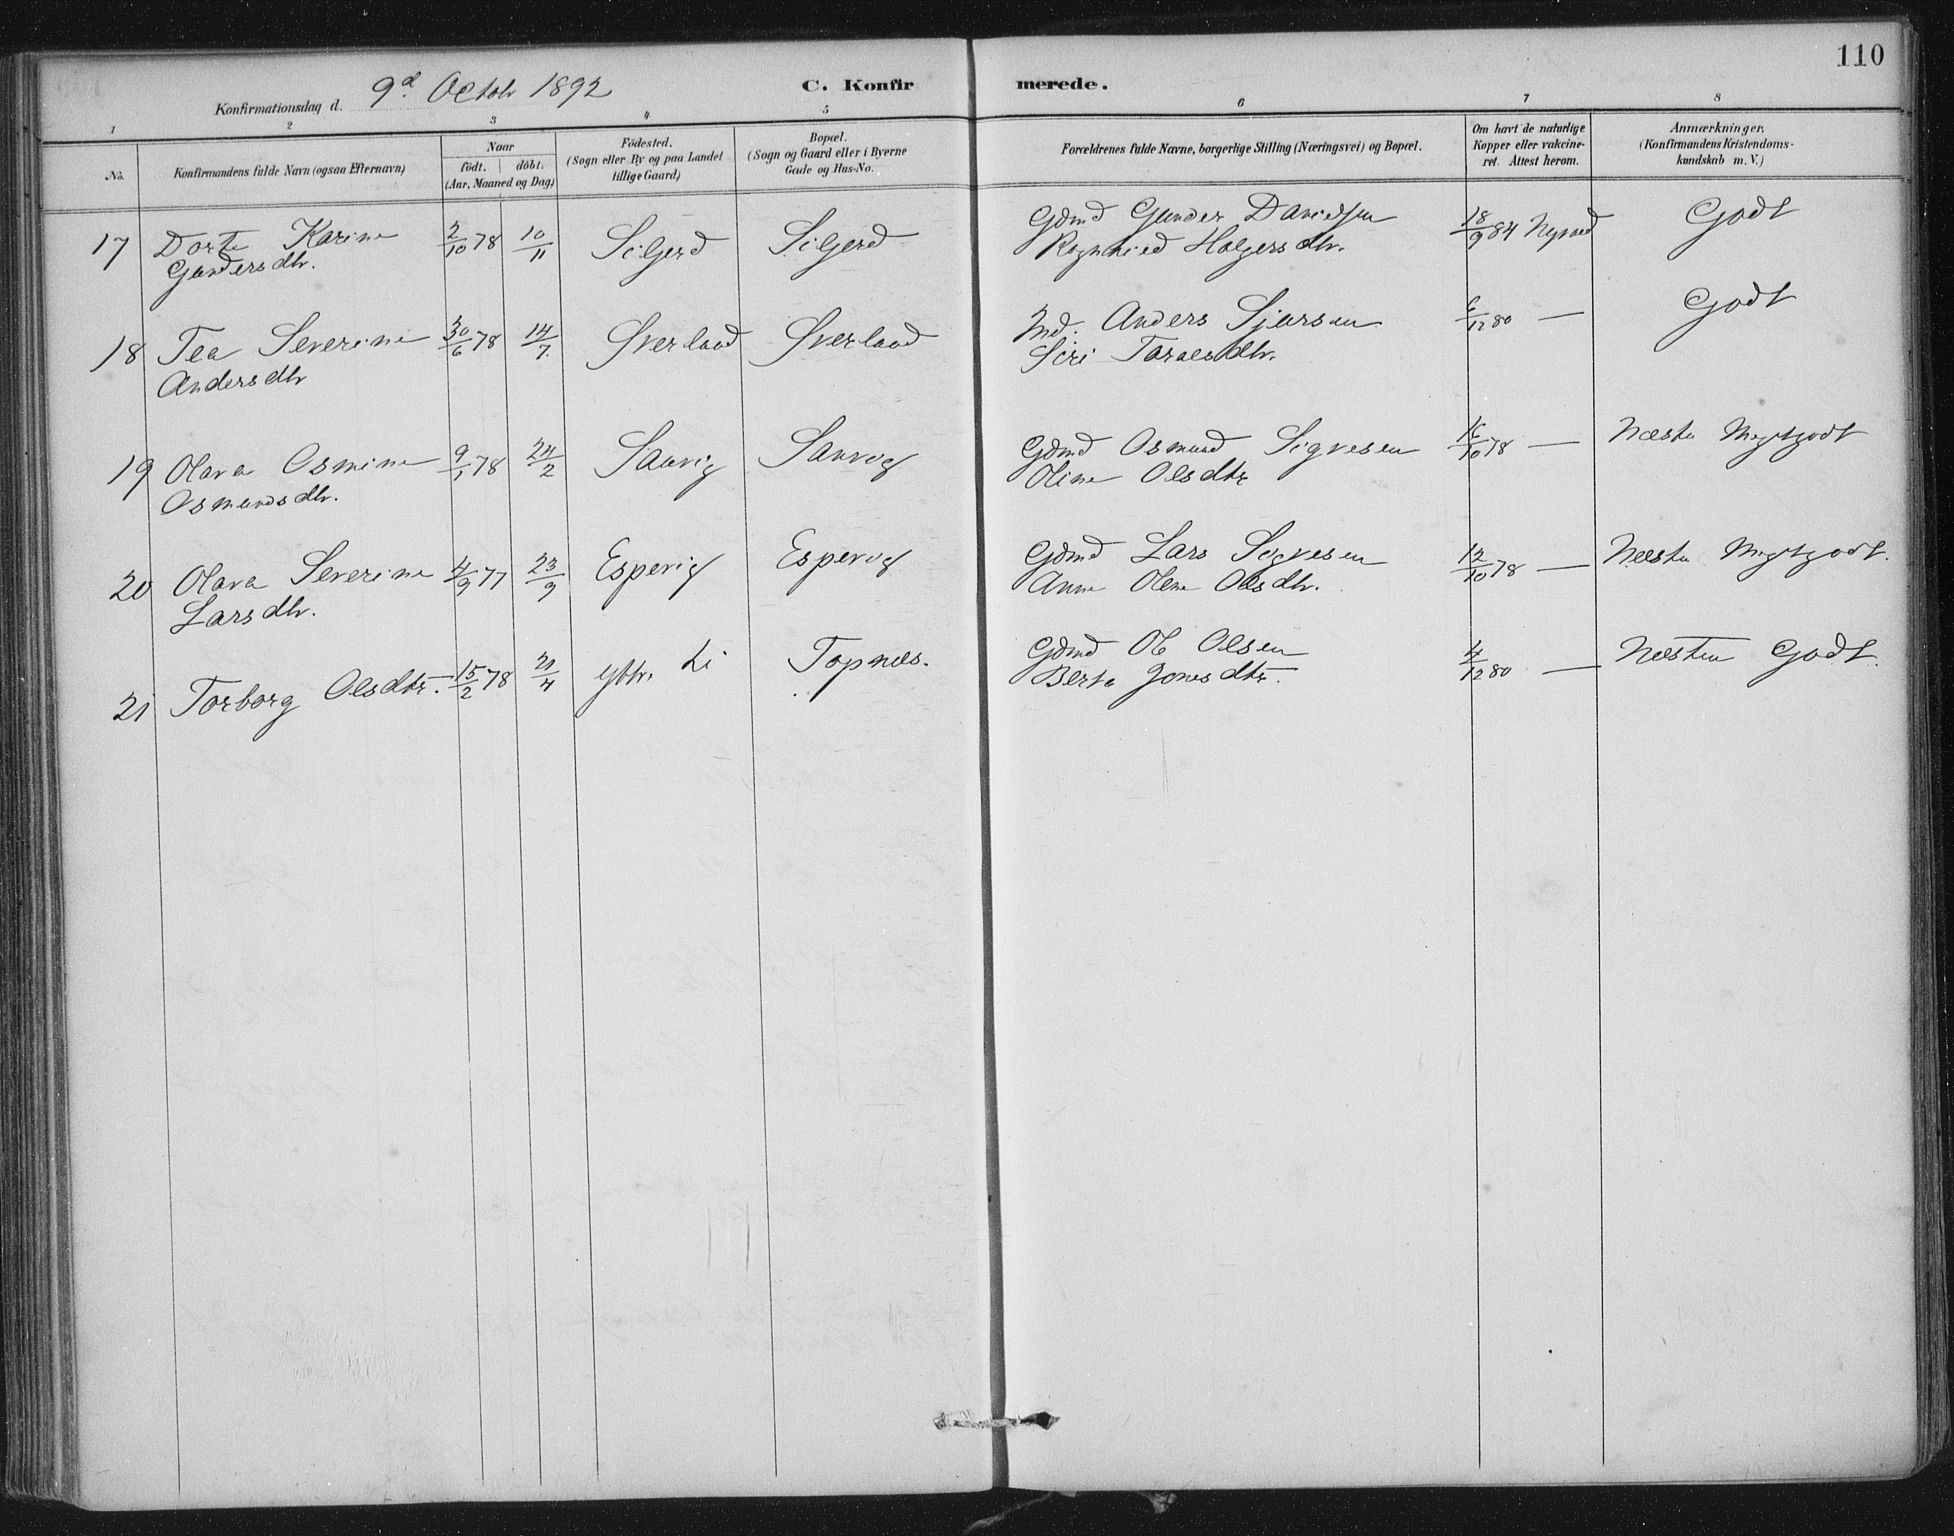 110
Konfirmationsdag d. 9d Octobr 1892
C. Konfirmerede.
1 2 3 4 5 6 7 8
No. Konfirmandens fulde Navn (ogsaa Efternavn) Naar født. døbt. (Aar, Maaned og Dag) Fødested. (Sogn eller By og paa Landet tillige Gaard) Bopæl. (Sogn og Gaard eller i Byerne Gade og Hus-No. Forældrenes fulde Navne, borgerlige Stilling (Næringsvei) og Bopæl. Om havt de naturlige Kopper eller vakcineret. Attest herom. Anmærkninger. (Konfirmandens Kristendomskundskab m. V.)
17 Dorte Karine 2/10 78 10/11 Silgerd Silgerd Gdmd Gunder Davidsen 18/9 84 Godt
Gundersdtr. Holgersdtr.
18 Tea Severine 30/6 78 14/7 Øverland Øverland Md. Anders 6/12 80 — Godt
Andersdtr Siri
19 Olava Osmine 9/1 78 24/2 Sanvig Sanvig Gdmd Osmund Sigvesen 16/10 78 — Næsten Megetgodt
Osmundsdtr. Oline Olsdtr
20 Olava Severine 4/9 77 23/9 Espevig Espevig Gdmd Lars Sigvesen 12/10 78 — Næsten Megetgodt.
Larsdtr. Anne Oline Olsdtr.
21 Torborg Olsdtr. 15/2 78 21/4 Yttr. Li Topnes. Gdmd Ole Olsen 4/12 80 — Næsten Godt.
Berta Jonesdtr.